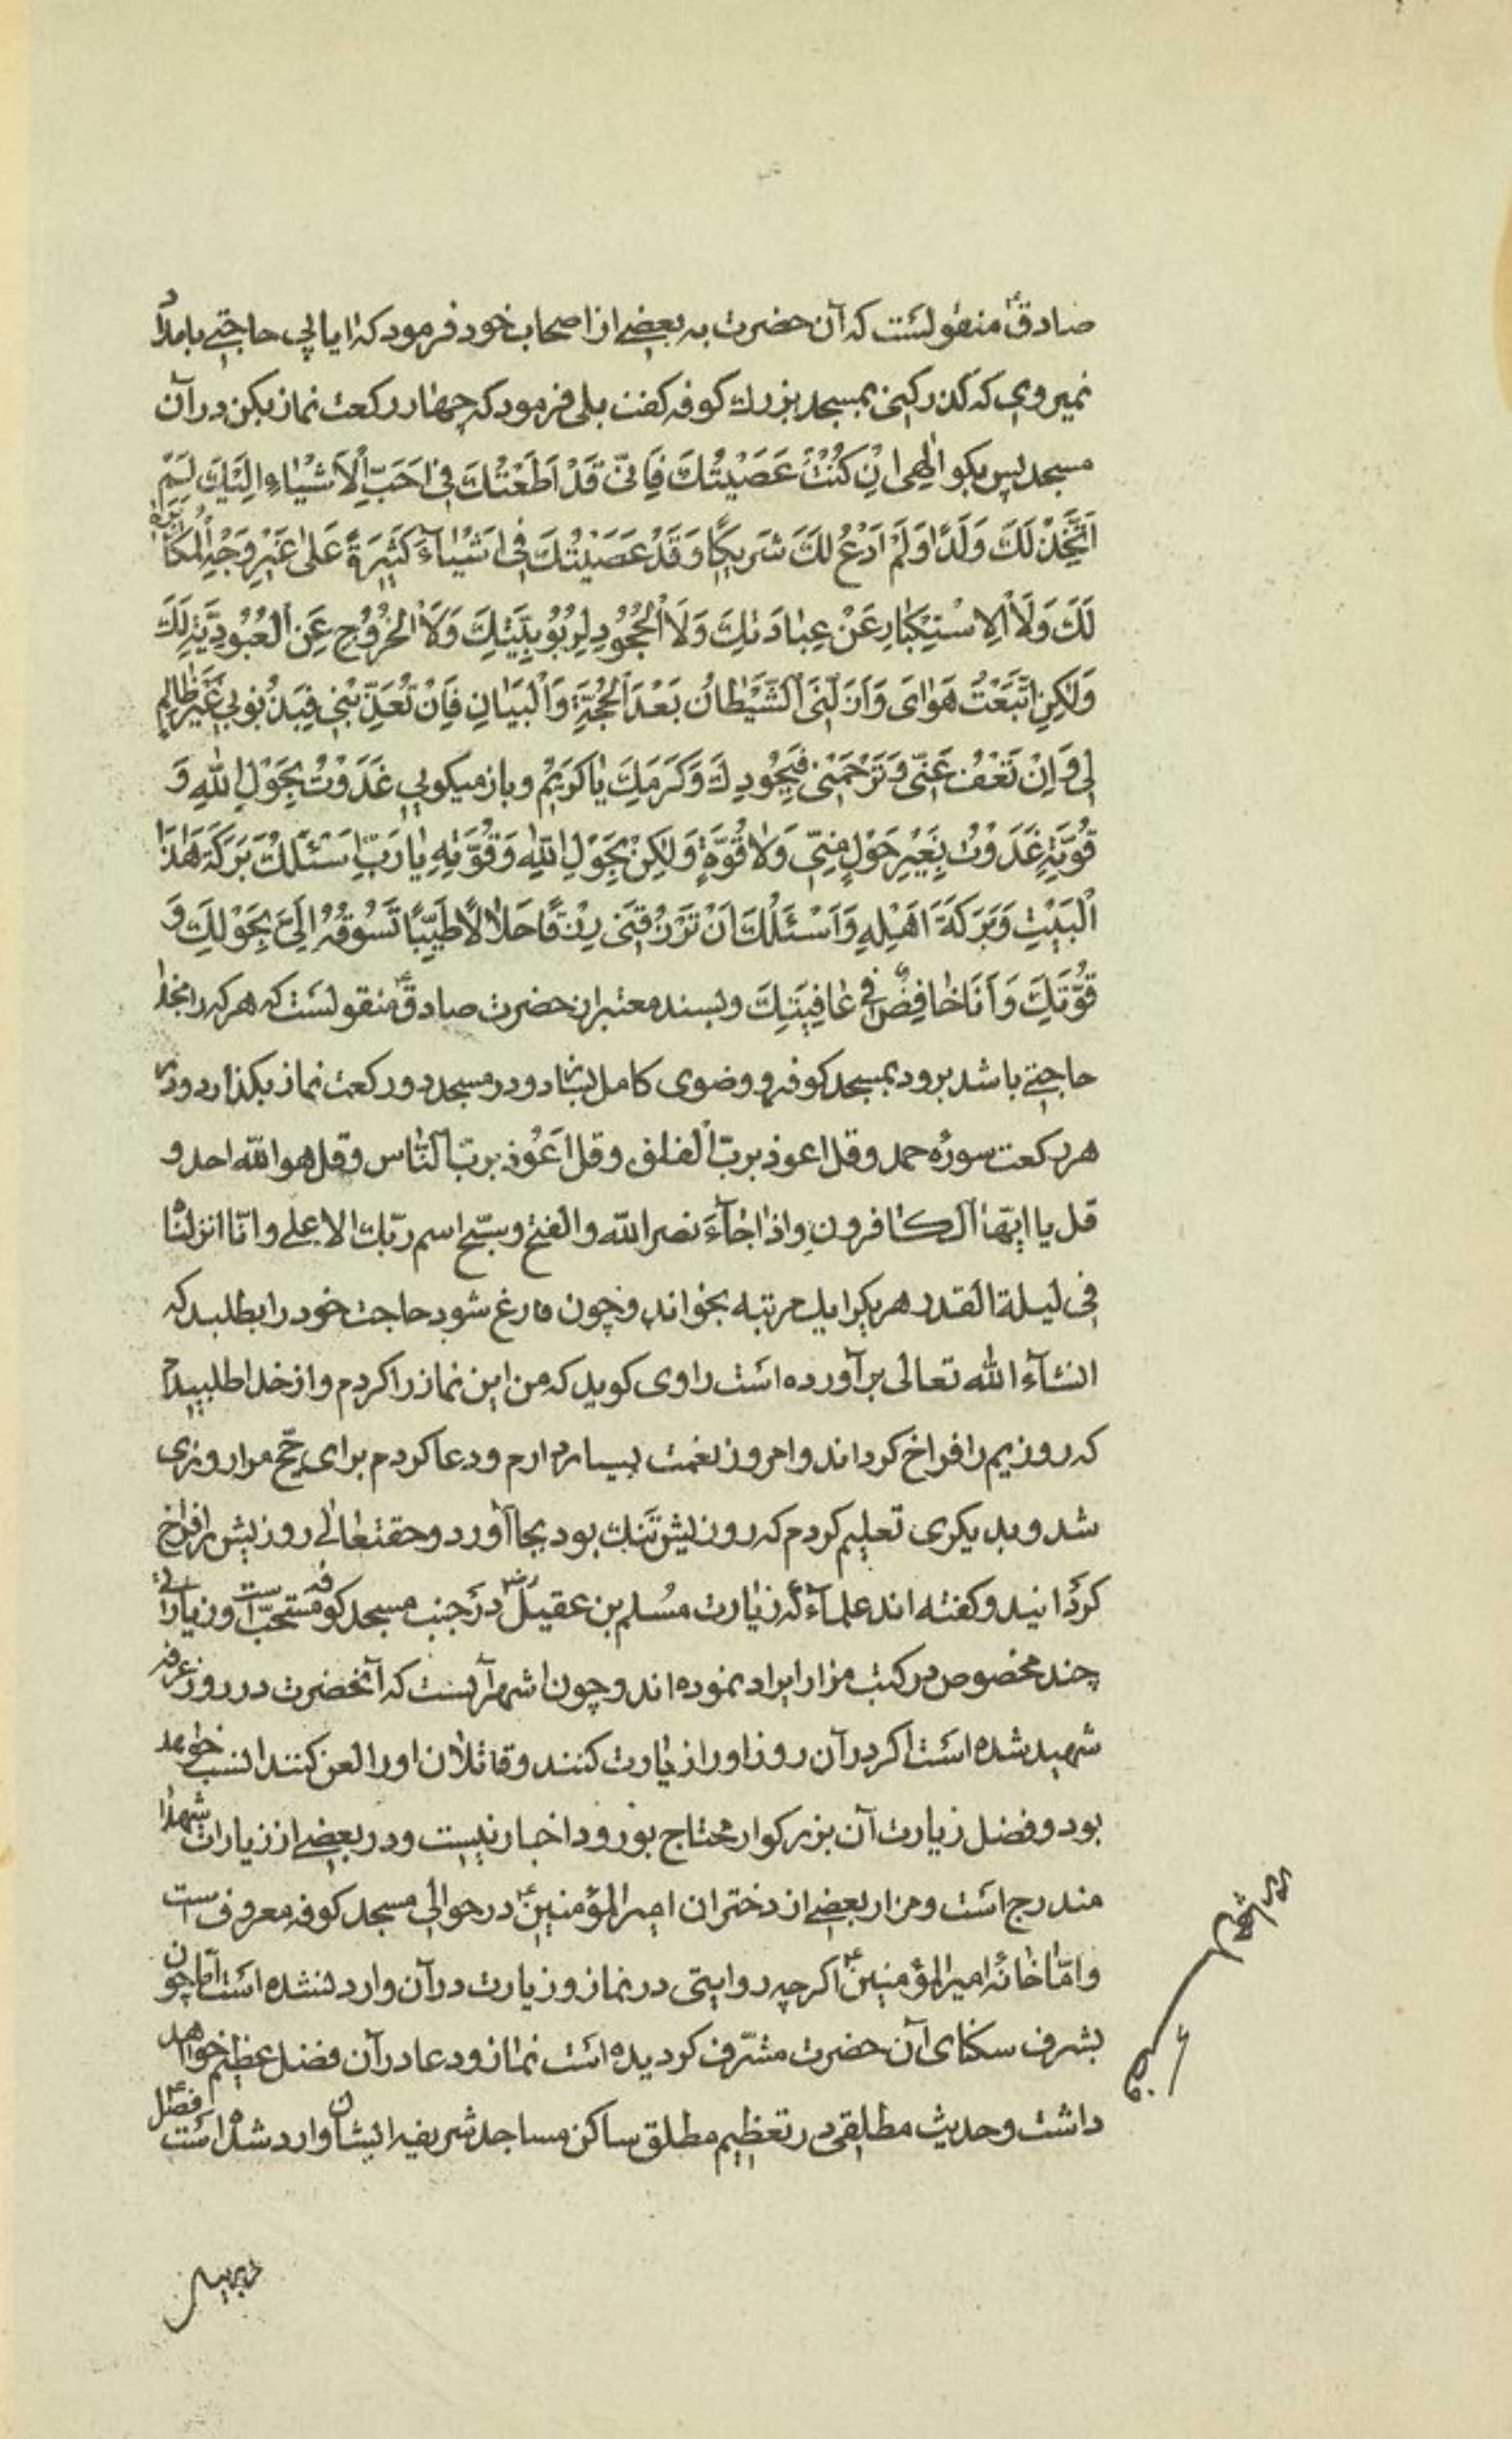 صادق ع منقولست که آن حضرت به بعضے از اصحاب خود فرمود که ایا پی حاجتے بامداد
نمیروی که کذر کنی بمسجد بزرك کوفه کفت بلی فرمود که چهار رکعت نماز بکن در آن
مسجد پس بکو اِلٰهی اِنْ كُنْتُ عَصَيْتُكَ فَاِنّی قَدْ اَطَعْتُكَ فی اَحَبِّ الْاَشْيٰاءِ اِلَيْكَ لَمْ
اَتَّخِذْ لَكَ وَلَدًا وَلَمْ اَدْعُ لَكَ شَريكًا وَقَدْ عَصَيْتُكَ فی اَشْيٰآءَ كَثيرَةً عَلٰی غَيْرِ وَجْهِ الْمُكٰابَرَةِ
لَكَ وَلَا الْاِسْتِكْبٰارِ عَنْ عِبٰادَتِكَ وَلَا الْجُحُودِ لِرُبُوبِيَّتِكَ وَلَا الْخُرُوجِ عَنِ الْعُبُودِيَّةِ لَكَ
وَلٰكِنِ اتَّبَعْتُ هَوٰایَ وَاَزَلَّنِیَ الشَّيْطٰانُ بَعْدَ الْحُجَّةِ وَالْبَيٰانِ فَاِنْ تُعَذِّبْنی فَبِذُنُوبی غَيْرَ ظٰالِمٍ
لی وَاِنْ تَعْفُ عَنّی وَتَرْحَمْنی فَبِجُودِكَ وَكَرَمِكَ يٰا كَريمُ و باز میکویی غَدَوْتُ بِحَوْلِ اللهِ وَ
قُوَّتِهِ غَدَوْتُ بِغَيْرِ حَوْلٍ مِنّی وَلٰا قُوَّةٍ وَلٰكِنْ بِحَوْلِ اللهِ وَقُوَّتِهِ يٰا رَبِّ اَسْئَلُكَ بَرَكَةَ هٰذَا
الْبَيْتِ وَبَرَكَةَ اَهْلِهِ وَاَسْئَلُكَ اَنْ تَرْزُقَنی رِزْقًا حَلٰالًا طَيِّبًا تَسُوقُهُ اِلَیَّ بِحَوْلِكَ وَ
قُوَّتِكَ وَاَنَا خٰافِضٌ فی عٰافِيَتِكَ و بسند معتبر از حضرت صادق ع منقولست که هر که را بخدا
حاجتے باشد برود بمسجد کوفه و وضوی کامل بسازد و در مسجد دو رکعت نماز بکذارد و در
هر رکعت سوره حمد و قل اعوذ بربّ الفلق و قل اعوذ بربّ النّاس و قل هو الله احد و
قل یا ایّها الکافرون و اذا جآءَ نصر الله والفتح و سبّح اسم ربّك الاعلے و انّا انزلناه
فی لیلة القدر هر یکرا یك مرتبه بخواند و چون فارغ شود حاجت خود را بطلبد که
انشآء الله تعالی برآورده است راوی کوید که من این نماز را کردم و از خدا طلبیدم
که روزیم را فراخ کرداند و امروز نعمت بسیار دارم و دعا کردم برای حجّ مرا روزی
شد و بدیکری تعلیم کردم که روزیش تنك بود بجا آورد و حقتعالی روزیش را فراخ
کردانید و کفته اند علمآء که زیارت مُسلم بن عقیل رض در جنب مسجد کوفه مستحبّ است و زیارات
چند مخصوص در کتب مزار ایراد نموده اند و چون اشهر آنست که آنحضرت در روز عرفه
شهید شده است اکر در آن روز او را زیارت کنند و قاتلان او را لعن کنند انسب خواهد
بود و فضل زیارت آن بزرکوار محتاج بورود اخبار نیست و در بعضے از زیارات شهدا
مندرج است و مزار بعضے از دختران امیر المؤمنین ع در حوالی مسجد کوفه معروف است
و امّا خانه امیر المؤمنین ع اکر چه روایتی در نماز و زیارت در آن وارد نشده است امّا چون
بشرف سکنای آن حضرت مشرّف کردیده است نماز و دعا در آن فضل عظیم خواهد
داشت و حدیث مطلقی در تعظیم مطلق ساکن مساجد شریفه ایشان وارد شده است فصل